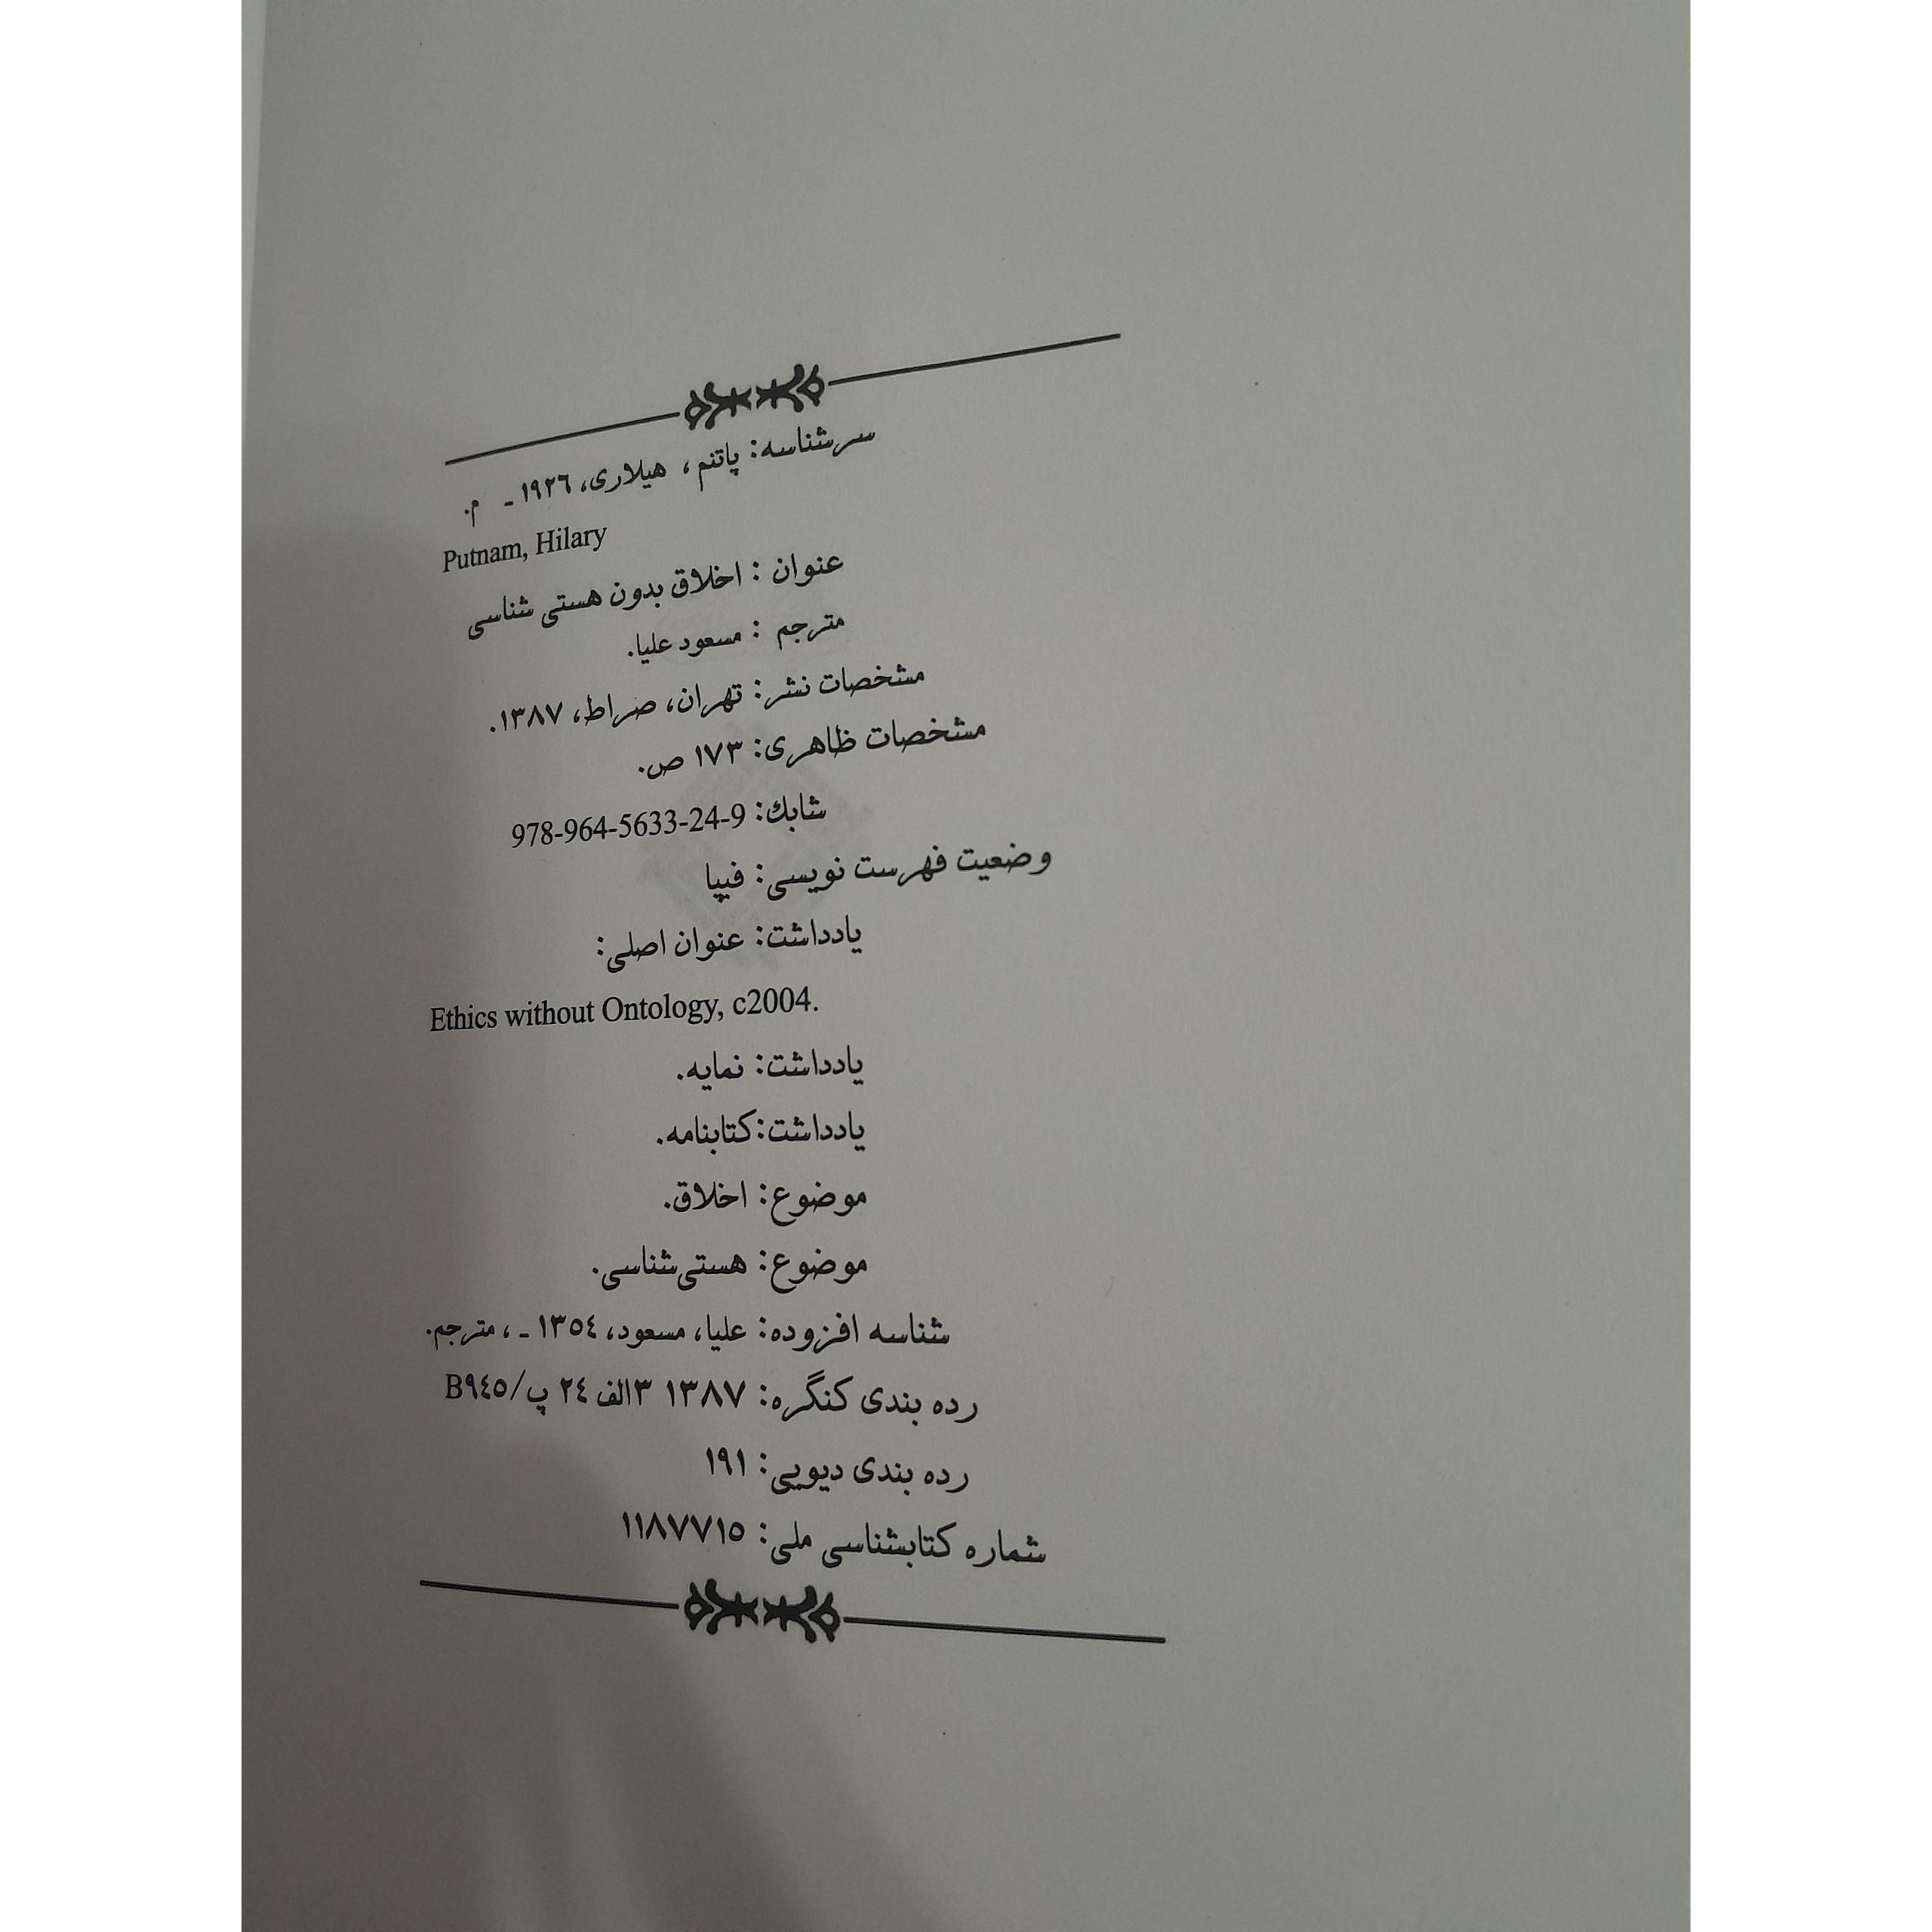 سرشناسه: پاتنم، هیلاری، ۱۹۲۶ - م.
Putnam, Hilary
عنوان : اخلاق بدون هستی شناسی
مترجم : مسعود علیا.
مشخصات نشر: تهران، صراط، ۱۳۸۷.
مشخصات ظاهری: ۱۷۳ ص.
شابك: 978-964-5633-24-9
وضعیت فهرست نویسی: فیپا
یادداشت: عنوان اصلی:
Ethics without Ontology, c2004.
یادداشت: نمایه.
یادداشت:کتابنامه.
موضوع: اخلاق.
موضوع: هستی‌شناسی.
شناسه افزوده: علیا، مسعود، ۱۳۵۴ - ، مترجم.
رده بندی کنگره: ۱۳۸۷ ۳الف ۲۴ پ/B۹۴۵
رده بندی دیویی: ۱۹۱
شماره کتابشناسی ملی: ۱۱۸۷۷۱۵